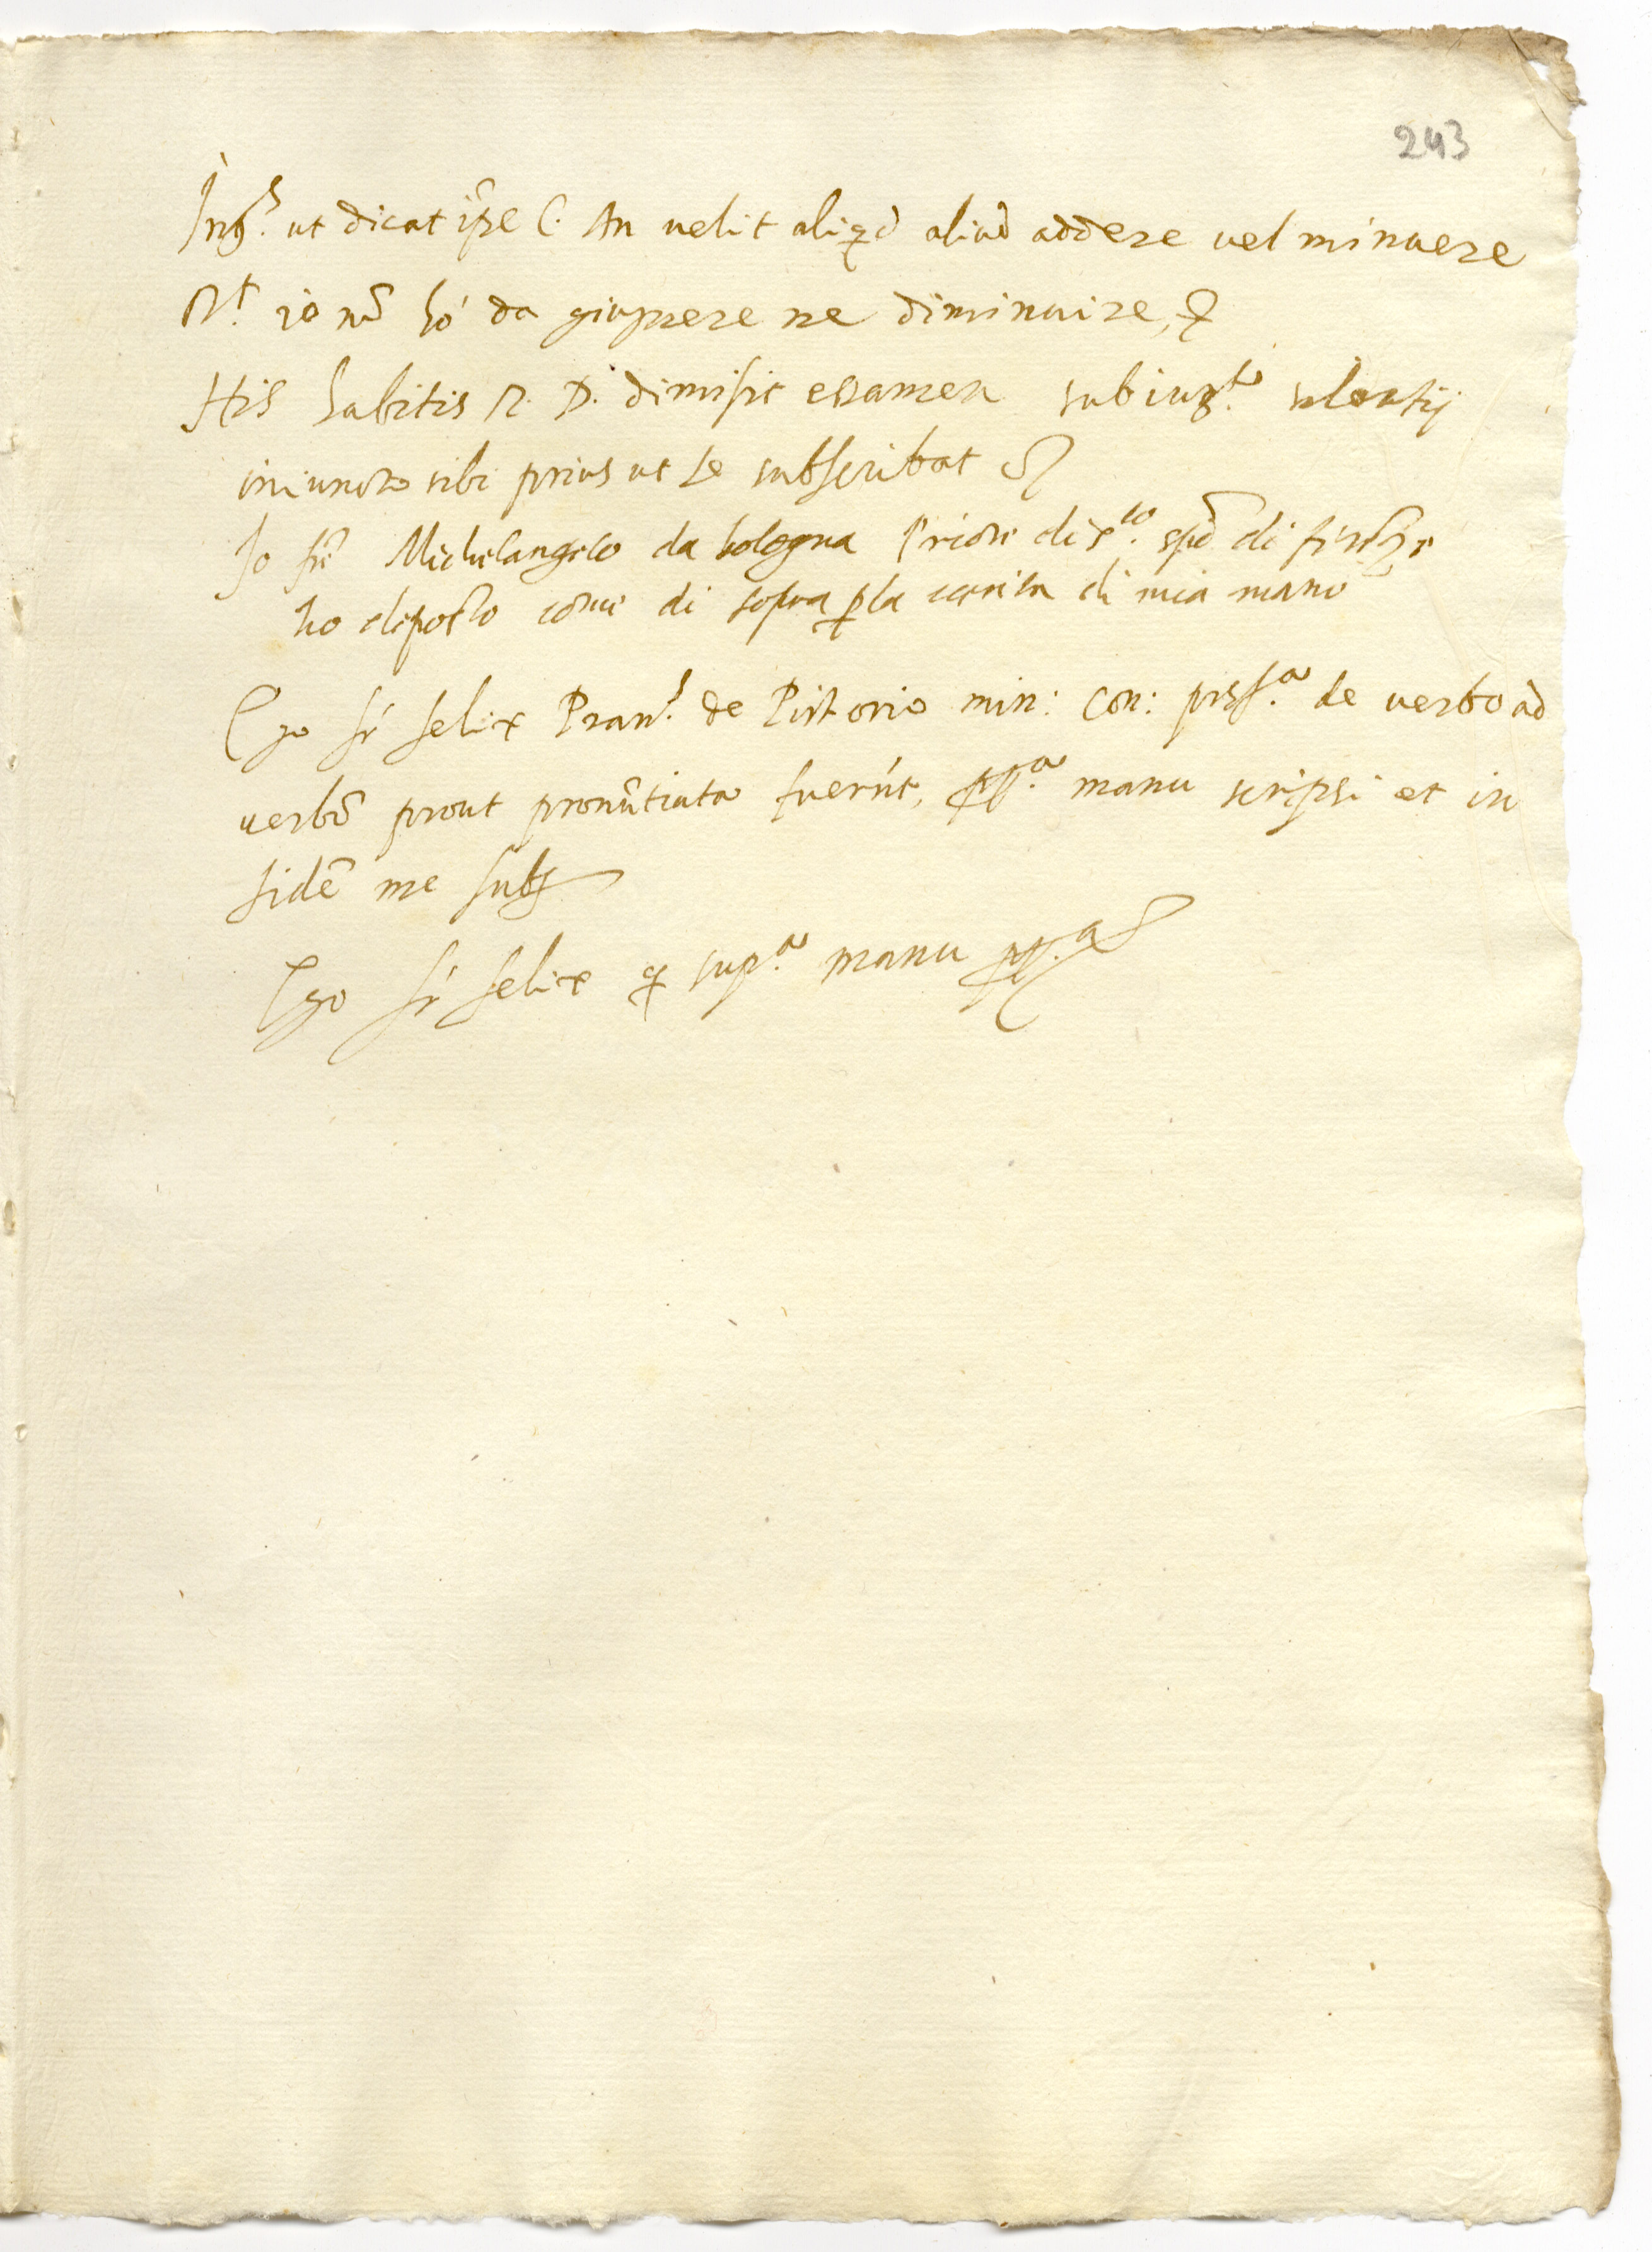 243
Int.s ut dicat ip̃e C. An uelit aliqd aliud addere uel minuere
R.t io nõ hó da giugnere ne diminuire, &
His habitis R. D. dimisit examen subiung.to silentij
iniuncto sibi prius ut se subscribat &
Io frẽ Michelangelo da bologna Priore di s.to spõ di firẽze
ho deposto come di sopra p la scrita di mia mano
Ego fr̃ felix Pran.s de Pistorio min: Con: prẽs.a de uerbo ad
uerbũ prout pronũtiata fuerũt, pp.a manu scripsi et in
fidẽ me subs
Ego fr̃ felix q sup.a manu pp.a